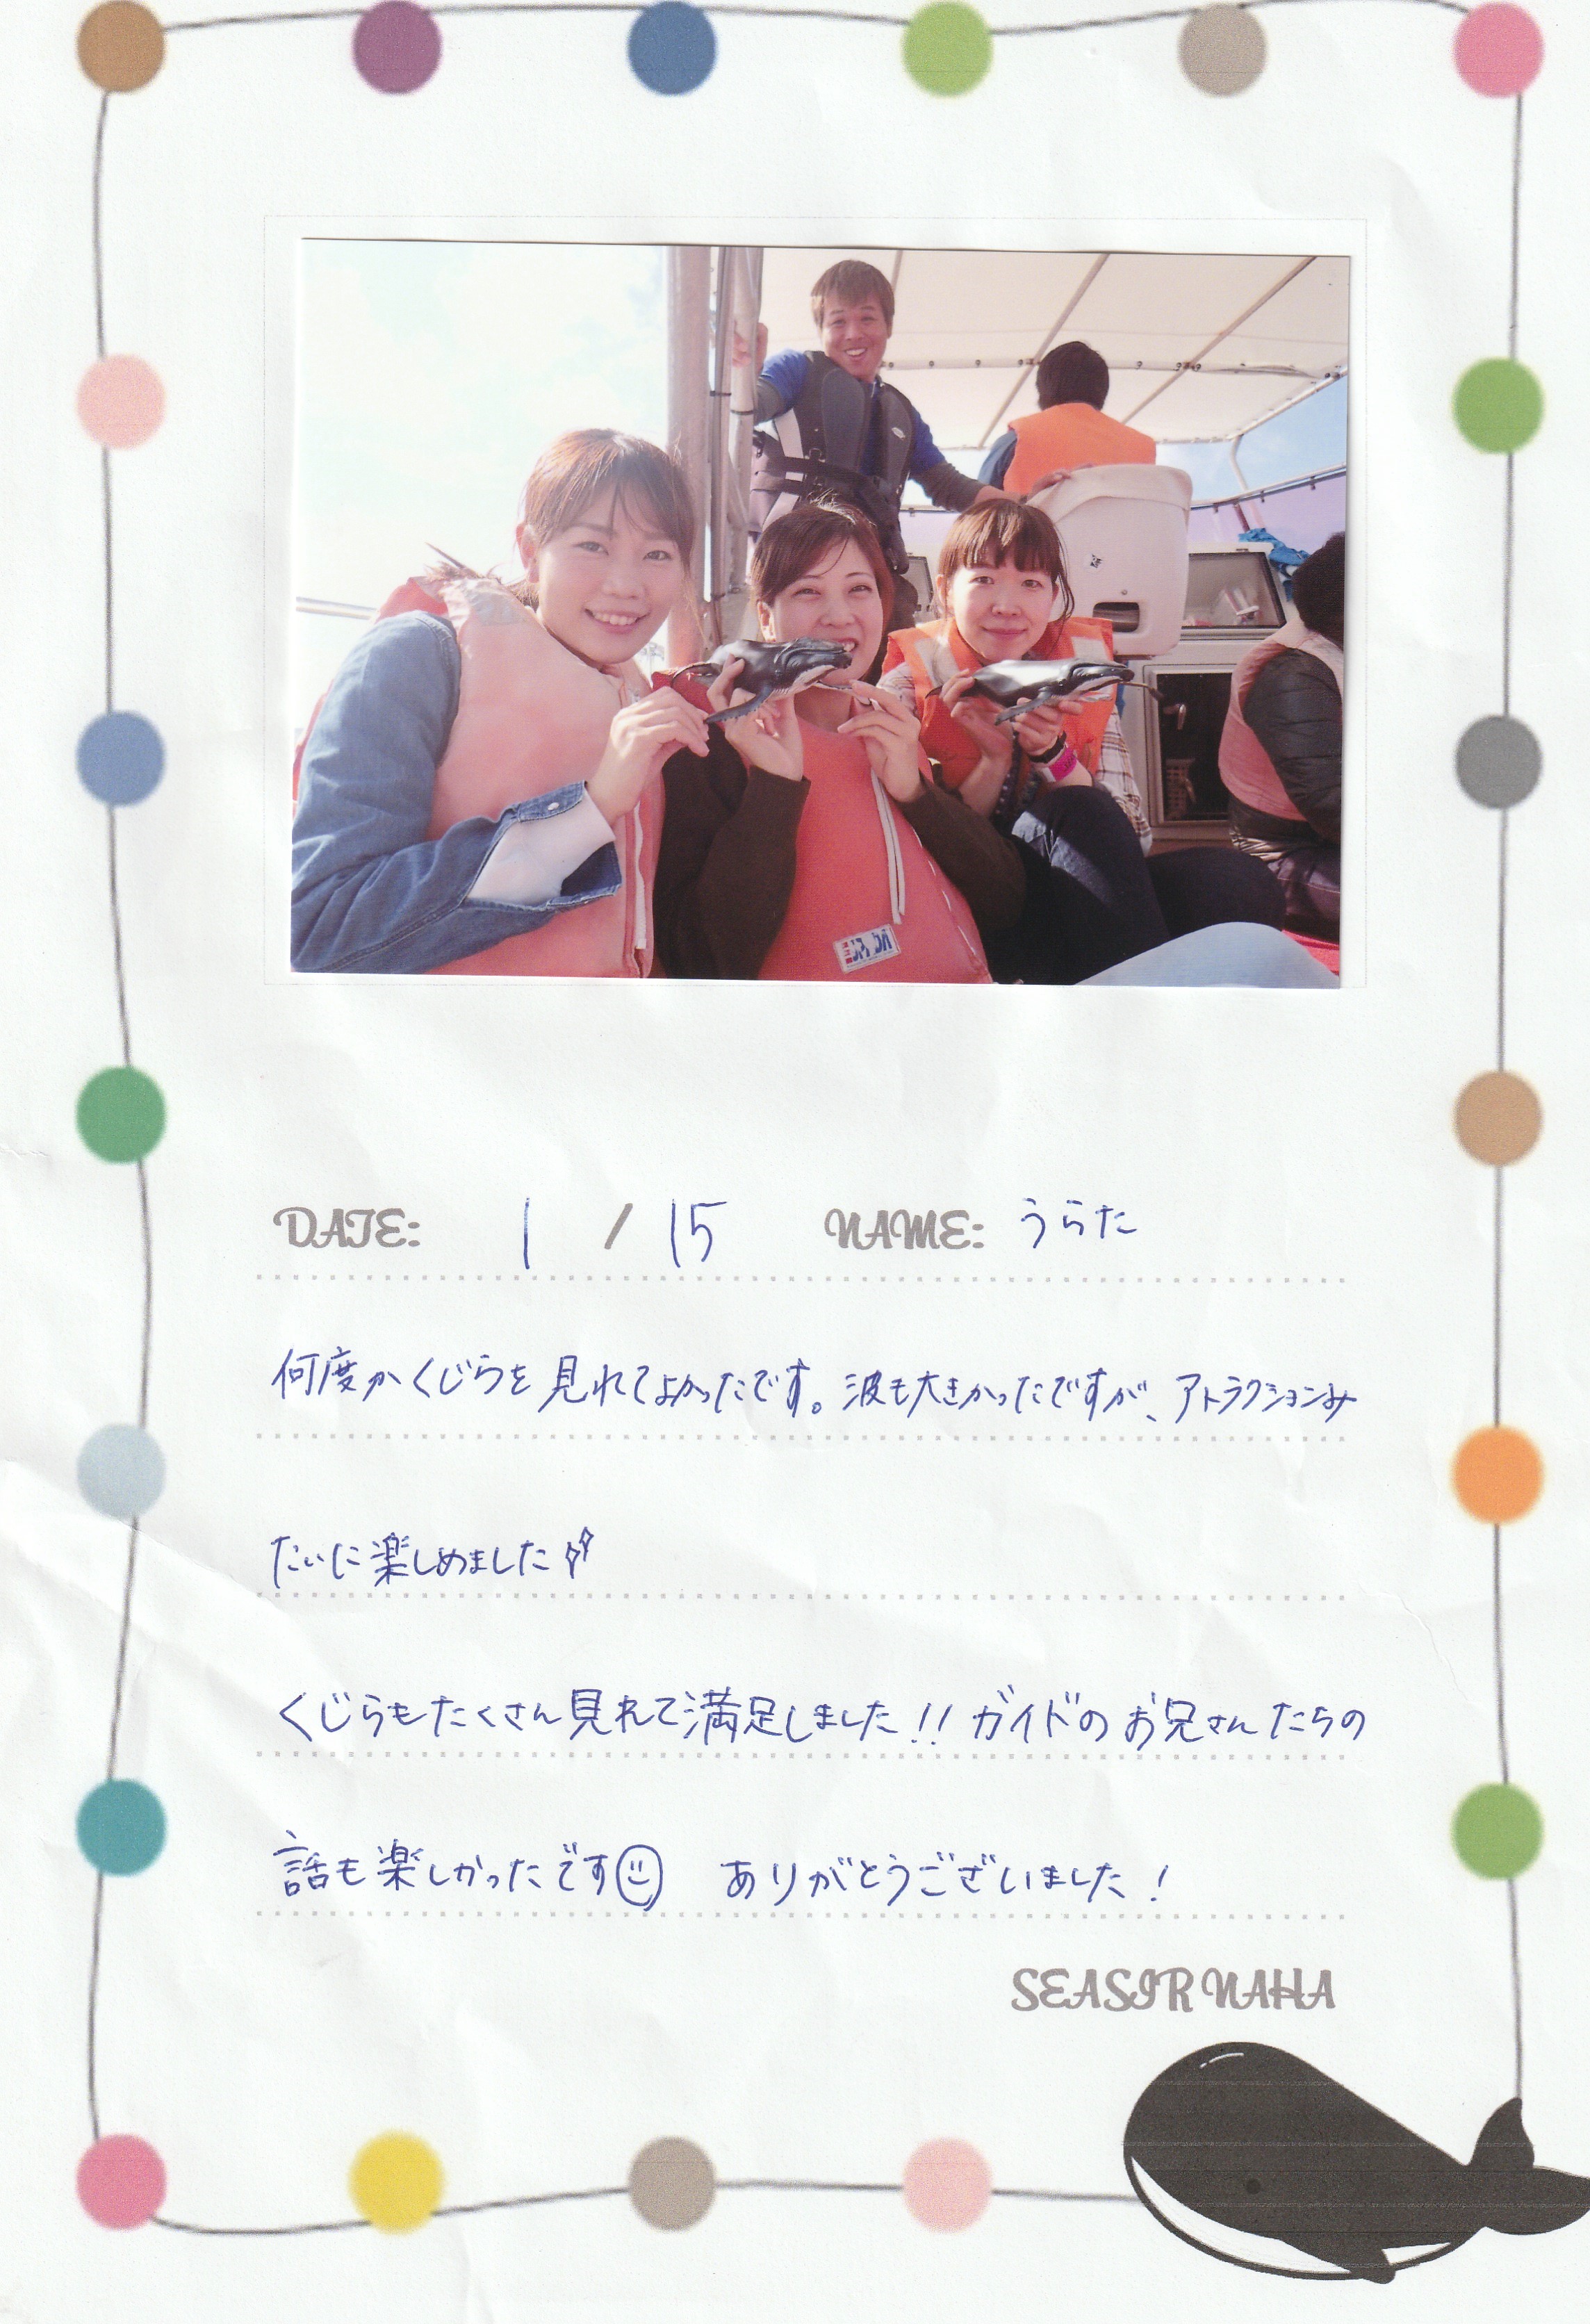 DATE: 1 / 15 NAME: うらた
何度かくじらを見れてよかったです。波も大きかったですが、アトラクションみ
たいに楽しめました
くじらもたくさん見れて満足しました!! ガイドのお兄さんたちの
話も楽しかったです☺ ありがとうございました!
SEASIR NAHA